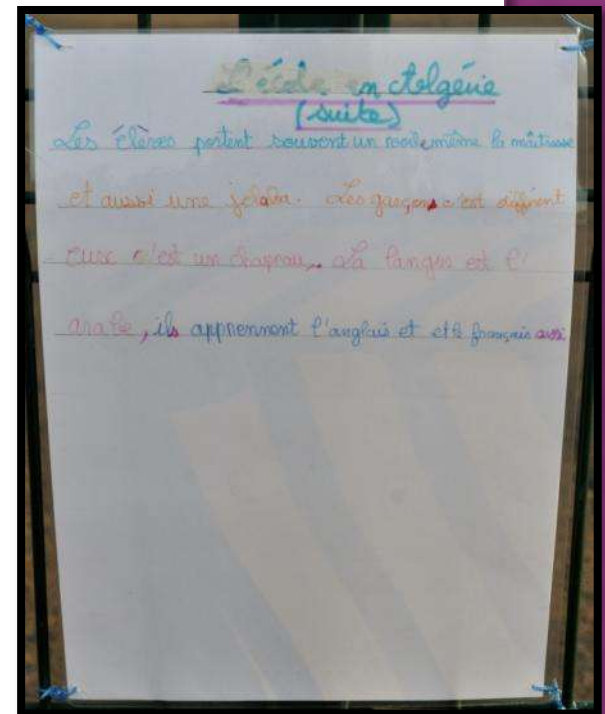 L'école en Algérie
(suite)
Les élèves portent souvent un voile même la maîtresse
et aussi une jelaba. Les garçons, c'est différent
eux c'est un chapeau,. La langue est l'
arabe, ils apprennent l'anglais et et le français aussi